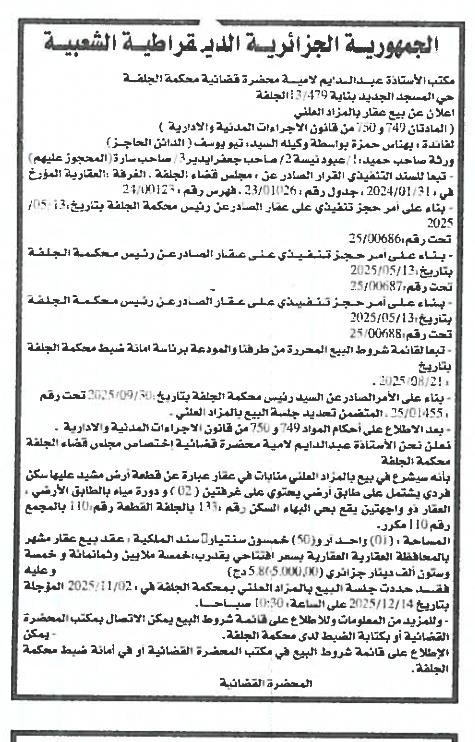 الجمهورية الجزائرية الديمقراطية الشعبية
مكتب الأستاذة عبدالدايم لامية محضرة قضائية محكمة الجلفة
حي المسجد الجديد بناية 13/479 الجلفة
اعلان عن بيع عقار بالمزاد العلني
( المادتان 749 و 750 من قانون الاجراءات المدنية والادارية )
لفائدة : بهناس حمزة بواسطة وكيله السيد: تيو يوسف ( الدائن الحاجز )
ورثة صاحب حميد: 1/ عبود نيسة 2/ صاحب جعفرايدير 3/ صاحب سارة (المحجوز عليهم)
- تبعا للسند التنفيذي القرار الصادر عن : مجلس قضاء الجلفة . الغرفة :العقارية المؤرخ
في : 2024/01/31 ، جدول رقم : 23/01026 . فهرس رقم : 24/00123
- بناء على أمر حجز تنفيذي على عقار الصادر عن رئيس محكمة الجلفة بتاريخ: 05/13/
2025
تحت رقم: 25/00686
- بناء على أمر حجز تنفيذي على عقار الصادر عن رئيس محكمة الجلفة
بتاريخ: 2025/05/13
تحت رقم: 25/00687
- بناء على أمر حجز تنفيذي على عقار الصادر عن رئيس محكمة الجلفة
بتاريخ: 2025/05/13
تحت رقم: 25/00688
- تبعا لقائمة شروط البيع المحررة من طرفنا والمودعة برئاسة امانة ضبط محكمة الجلفة
بتاريخ
: 2025/08/21 .
- بناء على الأمر الصادر عن السيد رئيس محكمة الجلفة بتاريخ: 2025/09/30 تحت رقم
: 25/01455 . المتضمن تحديد جلسة البيع بالمزاد العلني .
- بعد الاطلاع على أحكام المواد 749 و 750 من قانون الاجراءات المدنية والادارية .
نعلن نحن الأستاذة عبدالدايم لامية محضرة قضائية إختصاص مجلس قضاء الجلفة
محكمة الجلفة
بأنه سيشرع في بيع بالمزاد العلني منابات في عقار عبارة عن قطعة أرض مشيد عليها سكن
فردي يشتمل على طابق أرضي يحتوي على غرفتين ( 02 ) و دورة مياه بالطابق الأرضي ،
العقار ذو واجهتين يقع بحي البهاء السكن رقم : 133 بالجلفة القطعة رقم: 110 بالمجمع
رقم 110 مكرر.
المساحة : (01) واحد آر و(50) خمسون سنتيار سند الملكية : عقد بيع عقار مشهر
بالمحافظة العقارية العقارية بسعر افتتاحي يقدرب:خمسة ملايين وثمانمائة و خمسة
وستون ألف دينار جزائري (5.865.000,00 دج) وعليه
فقد حددت جلسة البيع بالمزاد العلني بمحكمة الجلفة في : 2025/11/02 المؤجلة
بتاريخ 2025/12/14 على الساعة: 10:30 صباحا.
- وللمزيد من المعلومات وللاطلاع على قائمة شروط البيع يمكن الاتصال بمكتب المحضرة
القضائية أو بكتابة الضبط لدى محكمة الجلفة. - يمكن
الإطلاع على قائمة شروط البيع في مكتب المحضرة القضائية او في أمانة ضبط محكمة
الجلفة.
المحضرة القضائية